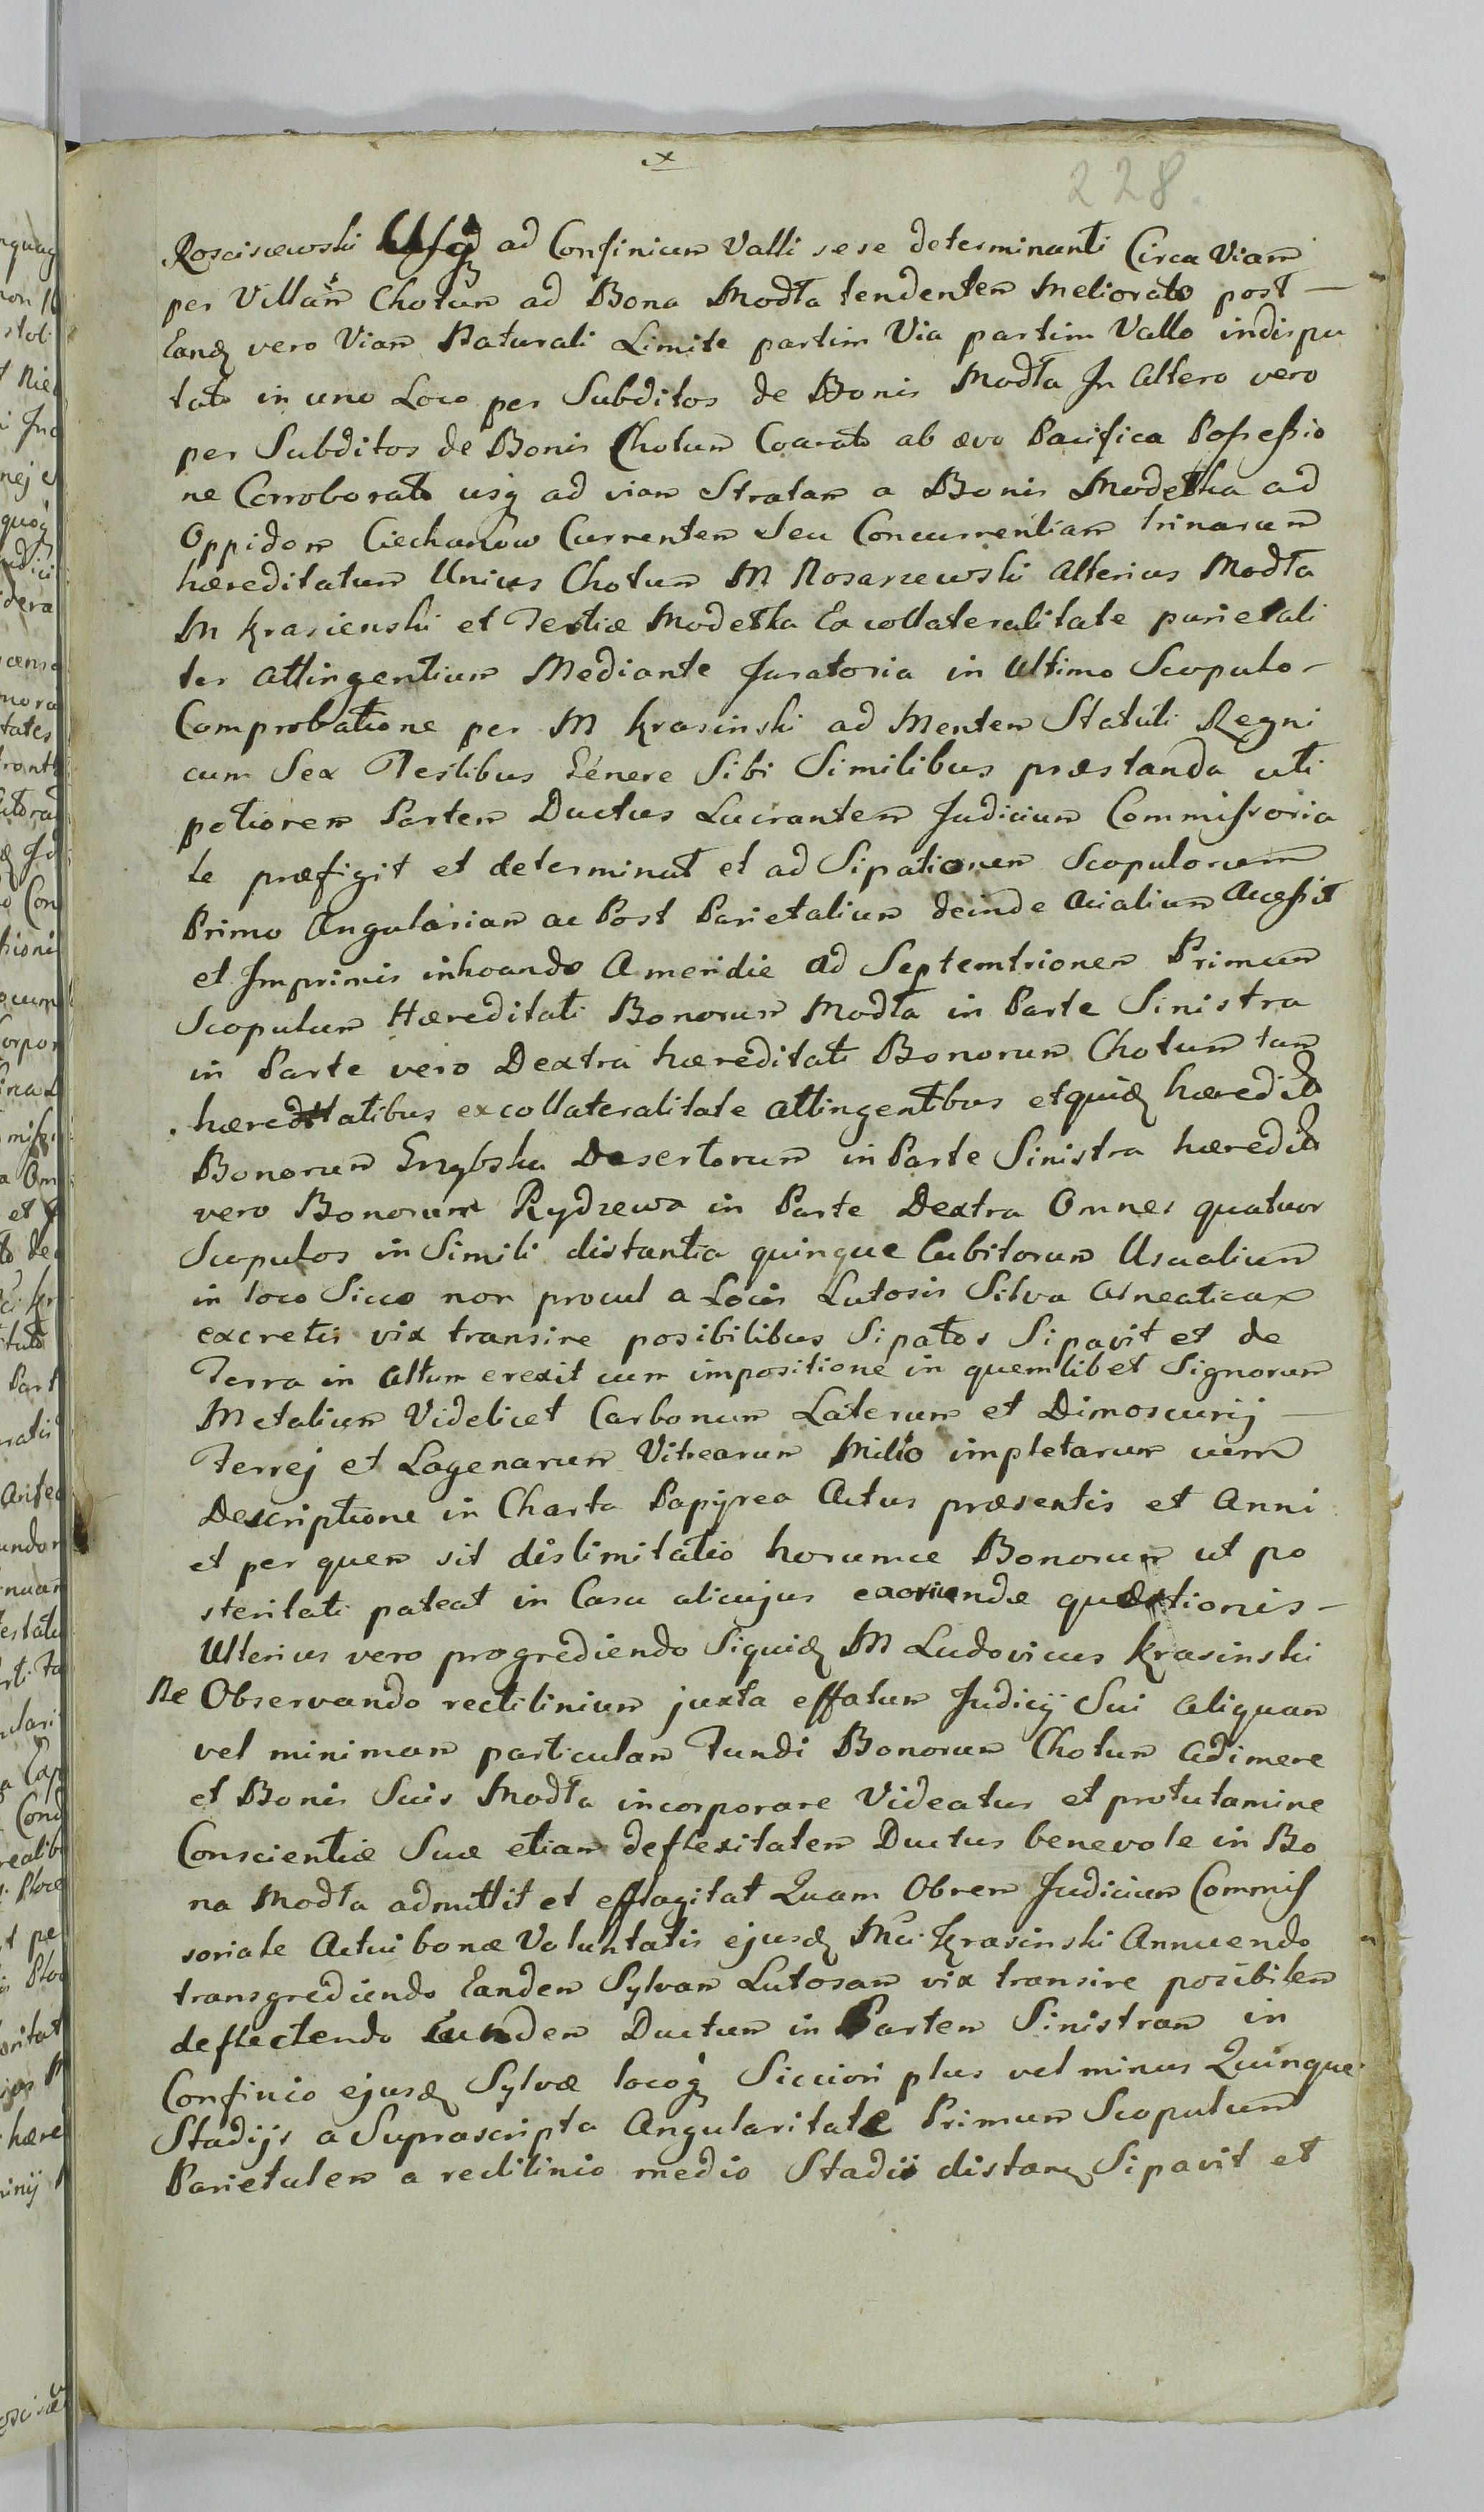 x
228.
Rosciszewski Usq ad Confinium Valli sese determinanti Circa Viam
per Villam Chotum ad Bona Modła tendentem Meliorato post —
Eandz vero Viam Naturali Limite partim Via partim Vallo indispu
tato in uno Loco per Subditos de Bonis Modła In altero vero
per Subditos de Bonis Chotum Coarato ab ævo Pacifica Possessio
ne Corroborato usq ad viam Stratam a Bonis Modełka ad
Oppidum Ciechanow Currentem seu Concurrentiam trinarum
hæreditatum Unius Chotum M Rosarzewski Alterius Modła
M Krasienski et Tertiæ Modełka Ex collateralitate parietali
ter attingentium Mediante Juratoria in Ultimo Scopulo –
Comprobatione per M Krasinski ad Mentem Statuti Regni
cum Sex Testibus Genere Sibi Similibus præstanda uti
potiorem Partem Ductus Lucrantem Judicium Commissoria
le præfigit et determinat et ad Sipationem Scopulorum
Primo Angularium ac Post Parietalium deinde Acialium Accessit
et Imprimis inhoando A meridie ad Septemtrionem Primum
Scopulum Hæreditati Bonorum Modła in Parte Sinistra
in Parte vero Dextra hæreditati Bonorum Chotum tam
hæreditatibus ex collateralitate attingentibus et quidz hæredit
Bonorum Grzybsku Desertorum in Parte Sinistra hæredit
vero Bonorum Rydzewa in Parte Dextra Omnes quatuor
Scopulos in Simili distantia quinque Cubitorum Usualium
in loco Sicco non procul a Locis Lutosis Silva Alneatica
excretis vix transire posibilibus Sipatos Sipavit et de
Terra in Altum erexit cum impositione in quemlibet Signorum
Metalium Videlicet Carbonum Laterum et Dimoscurij —
Terrej et Lagenarum Vitrearum Milio impletarum cum
Descriptione in Charta Papÿrea Actus præsentis et Anni
et per quem sit dislimitatio horumce Bonorum ut po
steritati pateat in Casu alicujus exoriendæ quæstionis –
Ulterius vero progrediendo Siquidz M Ludovicus Krasinski
Ne Observando rectilinium juxta effatum Judicij Sui aliquam
vel minimam particulam Fundi Bonorum Chotum Adimere
et Bonis Suis Modła incorporare Videatur et pro tutamine
Conscientiæ Suæ etiam deflexitatem Ductus benevole in Bo
na Modła admittit et efflagitat Quam Obrem Judicium Commis
soriale Actui bonæ Voluntatis ejusdz Mci Krasinski Annuendo
transgrediendo Eandem Sylvam Lutosam vix transire posibilem
deflectendo Eundem Ductum in Partem Sinistram in
Confinio ejusdz Sylvæ locoq Sicciori plus vel minus Quinque
Stadijs a Suprascripta Angularitate Primum Scopulum
Parietalem a rectilinio medio Stadii distan Sipavit et